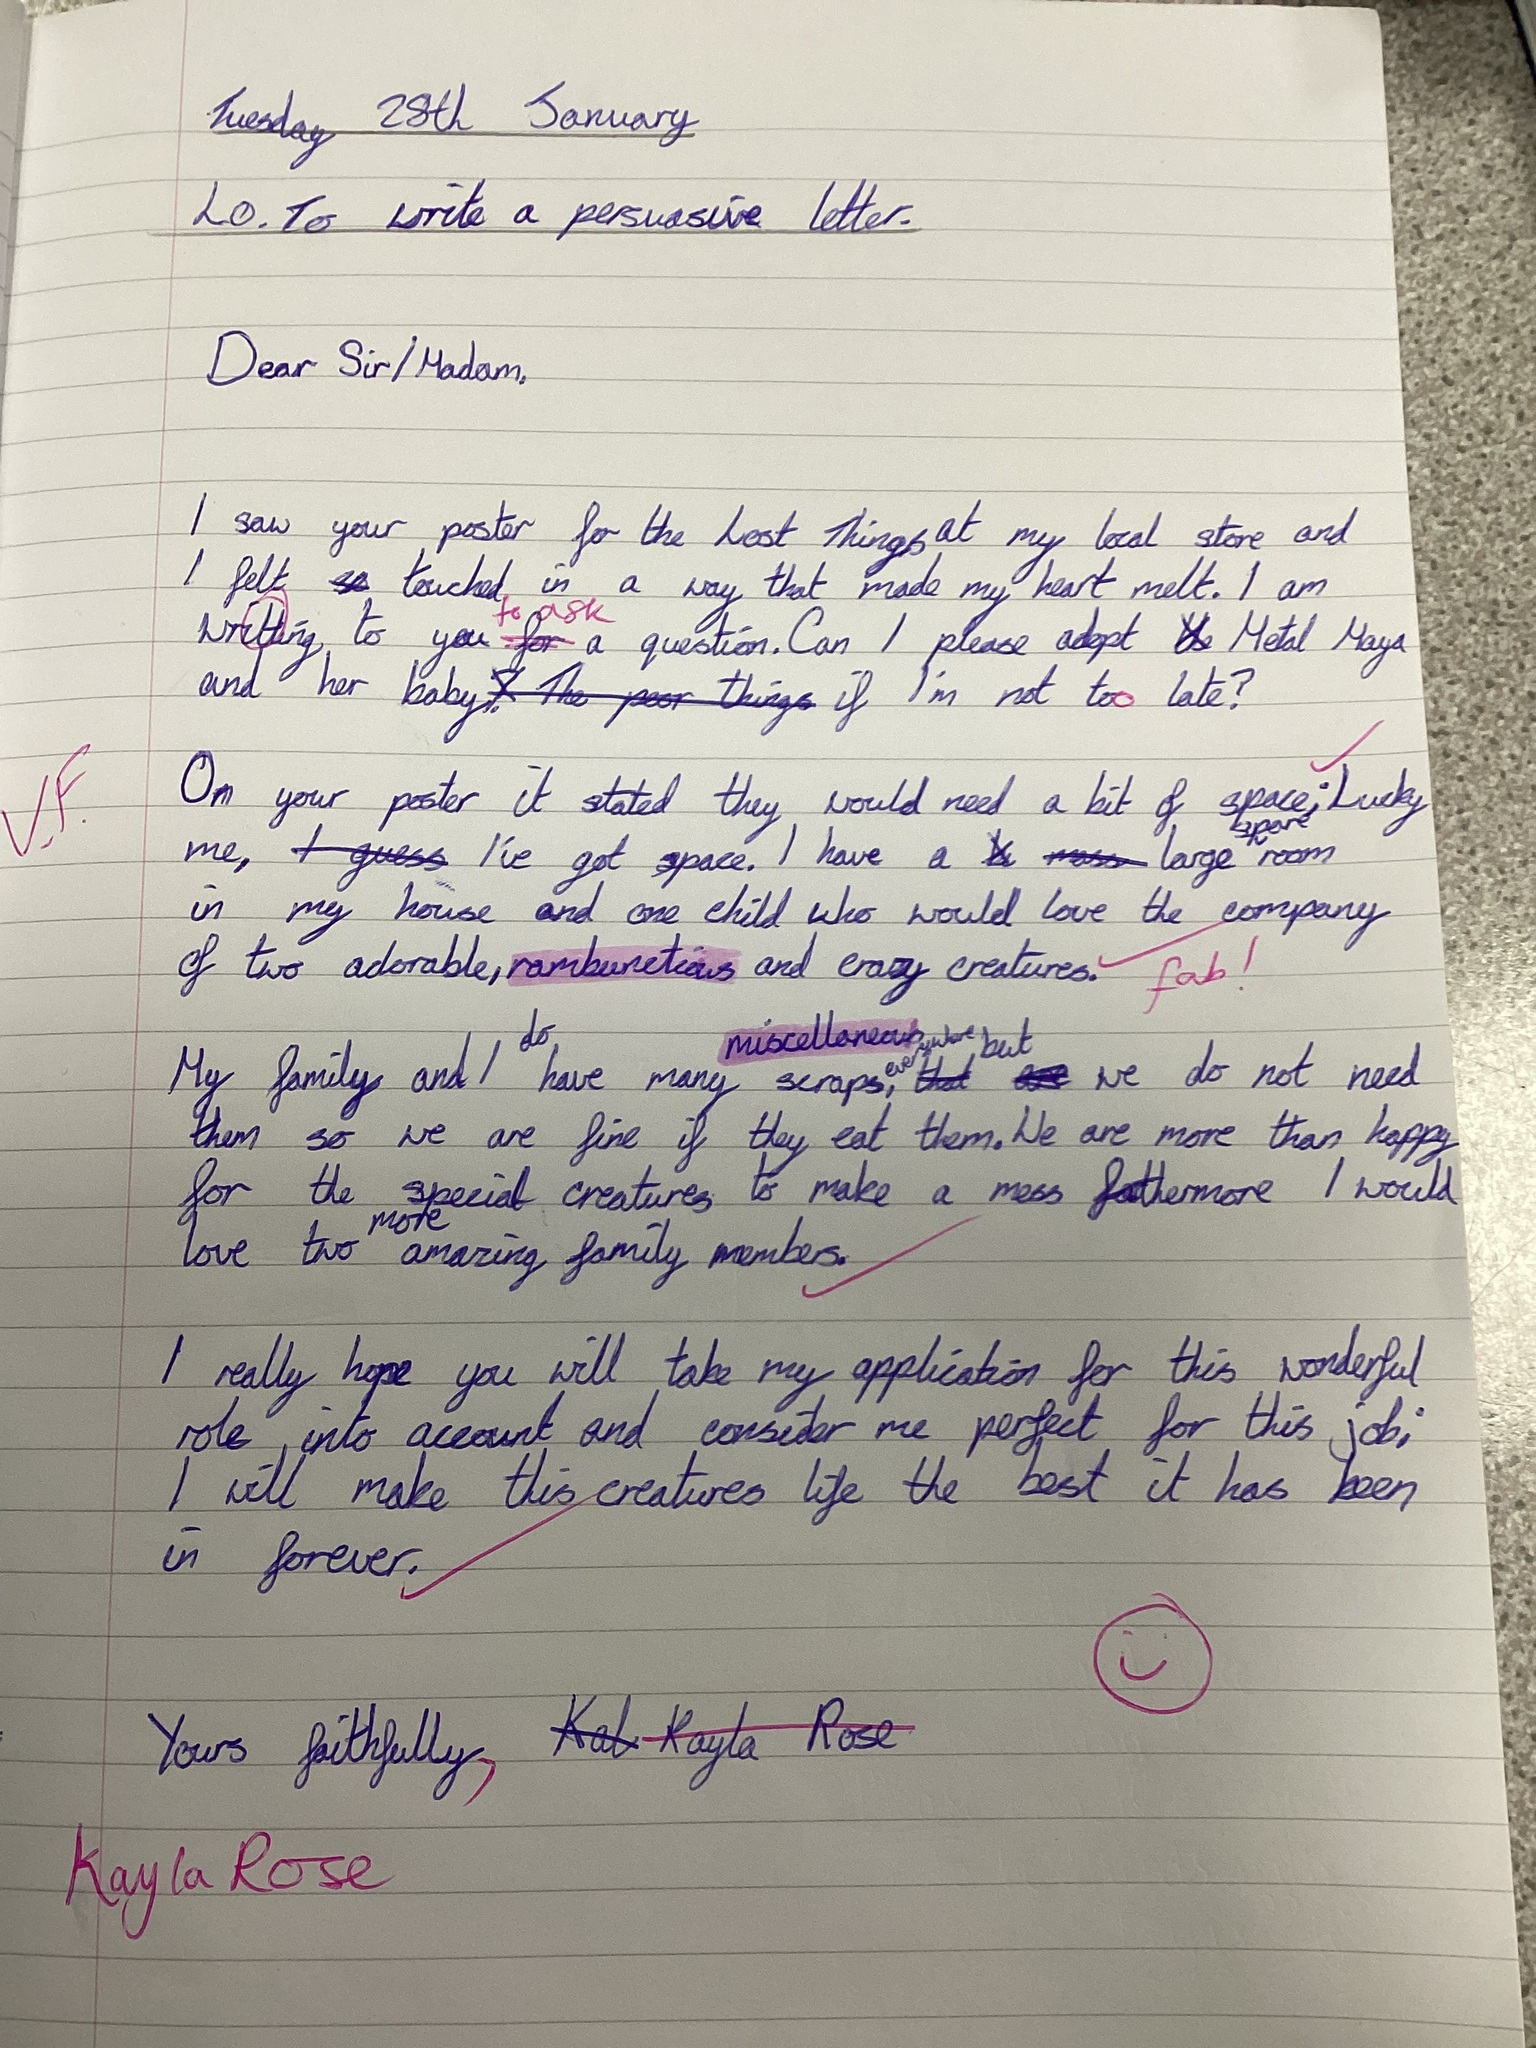 Tuesday 28th January
LO. To write a persuasive letter.
Dear Sir/Madam,
I saw your poster for the Lost Things at my local store and
I felt so touched in a way that made my heart melt. I am
writting to you for to ask a question. Can I please adopt Metal Maya
and her baby. The poor things if I'm not too late?
V.F.
On your poster it stated they would need a bit of space; Lucky
me, I guess I've got space. I have a mass large spare room
in my house and one child who would love the company
of two adorable, rambunctious and crazy creatures. fab!
My family and I do have many miscellaneous scraps, everywhere that but we do not need
them so we are fine if they eat them. We are more than happy
for the special creatures to make a mess fathermore I would
love two more amazing family members.
I really hope you will take my application for this wonderful
role into account and consider me perfect for this job;
I will make this creatures life the best it has been
in forever.
Yours faithfully, Kal Kayla Rose
Kayla Rose